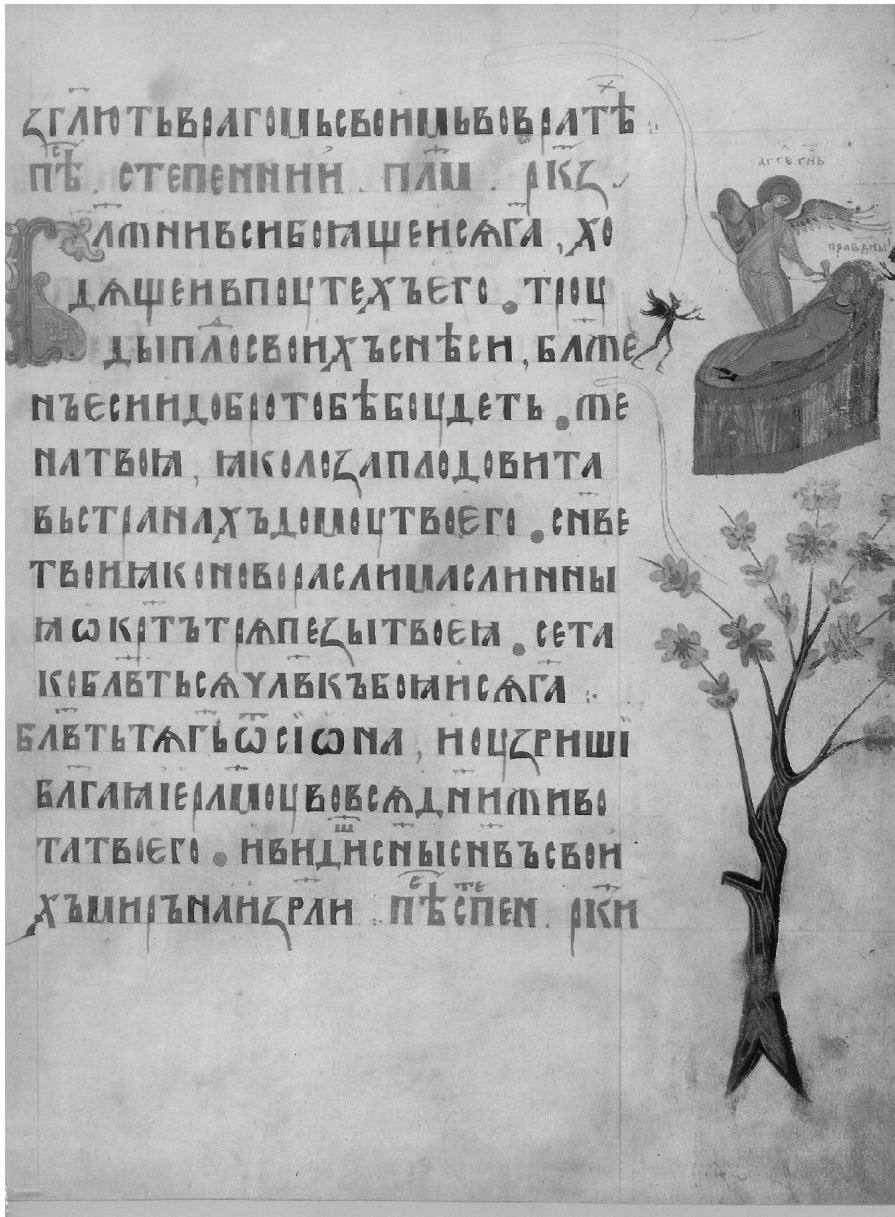 ꙁг҃лють врагомъ своимъ во вратѣх҃ ⁘
пѣс҃ . степенний . пл҃м . рк҃ꙁ
Бл҃жни вси боꙗщеисѧ га҃ , хо
дѧщеи в поутехъ его . троу
ды пло҃д своихъ снѣси , бл҃же
нъ еси и добро тобѣ боудеть . же
на твоꙗ , ꙗко лоꙁа плодовита
въ странахъ домоу твоего . сн҃ве
твои ꙗко новорасли маслинны
ꙗ ѡкрт҃ъ трѧпеꙁы твоеꙗ . се та
ко блв҃тьсѧ члв҃къ боꙗисѧ га҃ ⁘
блв҃ть тѧ гь҃ ѿ сїѡна , и оуꙁриши
бл҃гаꙗ іерлм҃оу во всѧ дн҃и живо
та твоего . и видиш҃и сн҃ы сн҃въ свои
хъ миръ на иꙁрл҃и ⁘ пѣс҃ степ҃ен . рк҃и
агг҃е гн҃ь
правдны